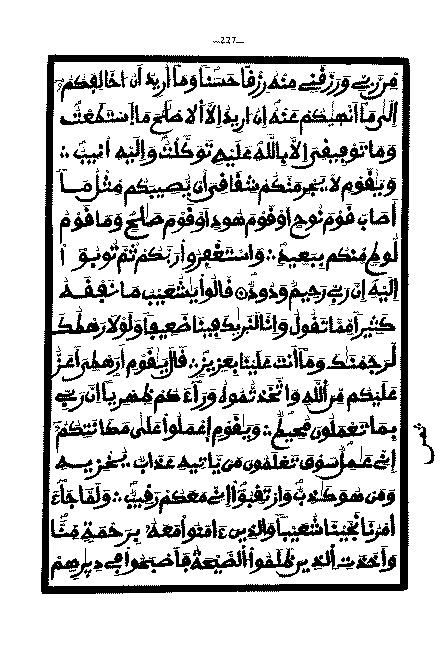 —227—
من ربي ورزقني منه رزقا حسنا وما أريد أن أخالفكم
إلى ما أنهيكم عنه إن أريد إلا الإصلح ما استطعت
وما توفيقي إلا بالله عليه توكلت وإليه أنيب ∴
ويقوم لا يجرمنكم شقاقي أن يصيبكم مثل ما
أصاب قوم نوح أو قوم هود أو قوم صلح وما قوم
لوط منكم ببعيد ∴ واستغفروا ربكم ثم توبوا
إليه إن ربي رحيم ودود قالوا يشعيب ما نفقه
كثيرا مما تقول وإنا لنريك فينا ضعيفا ولولا رهطك
لرجمنك وما أنت علينا بعزيز ∴ قال يقوم أرهطي أعز
عليكم من الله واتخذتموه وراءكم ظهريا إن ربي
بما تعملون محيط ∴ ويقوم اعملوا على مكانتكم
إني عمل سوف تعلمون من ياتيه عذاب يخزيه
ومن هو كذب وارتقبوا إني معكم رقيب ∴ ولما جاء
أمرنا نجينا شعيبا والذين ءامنوا معه برحمة منا
وأخذت الذين ظلموا الصيحة فأصبحوا في ديرهم
ثمن